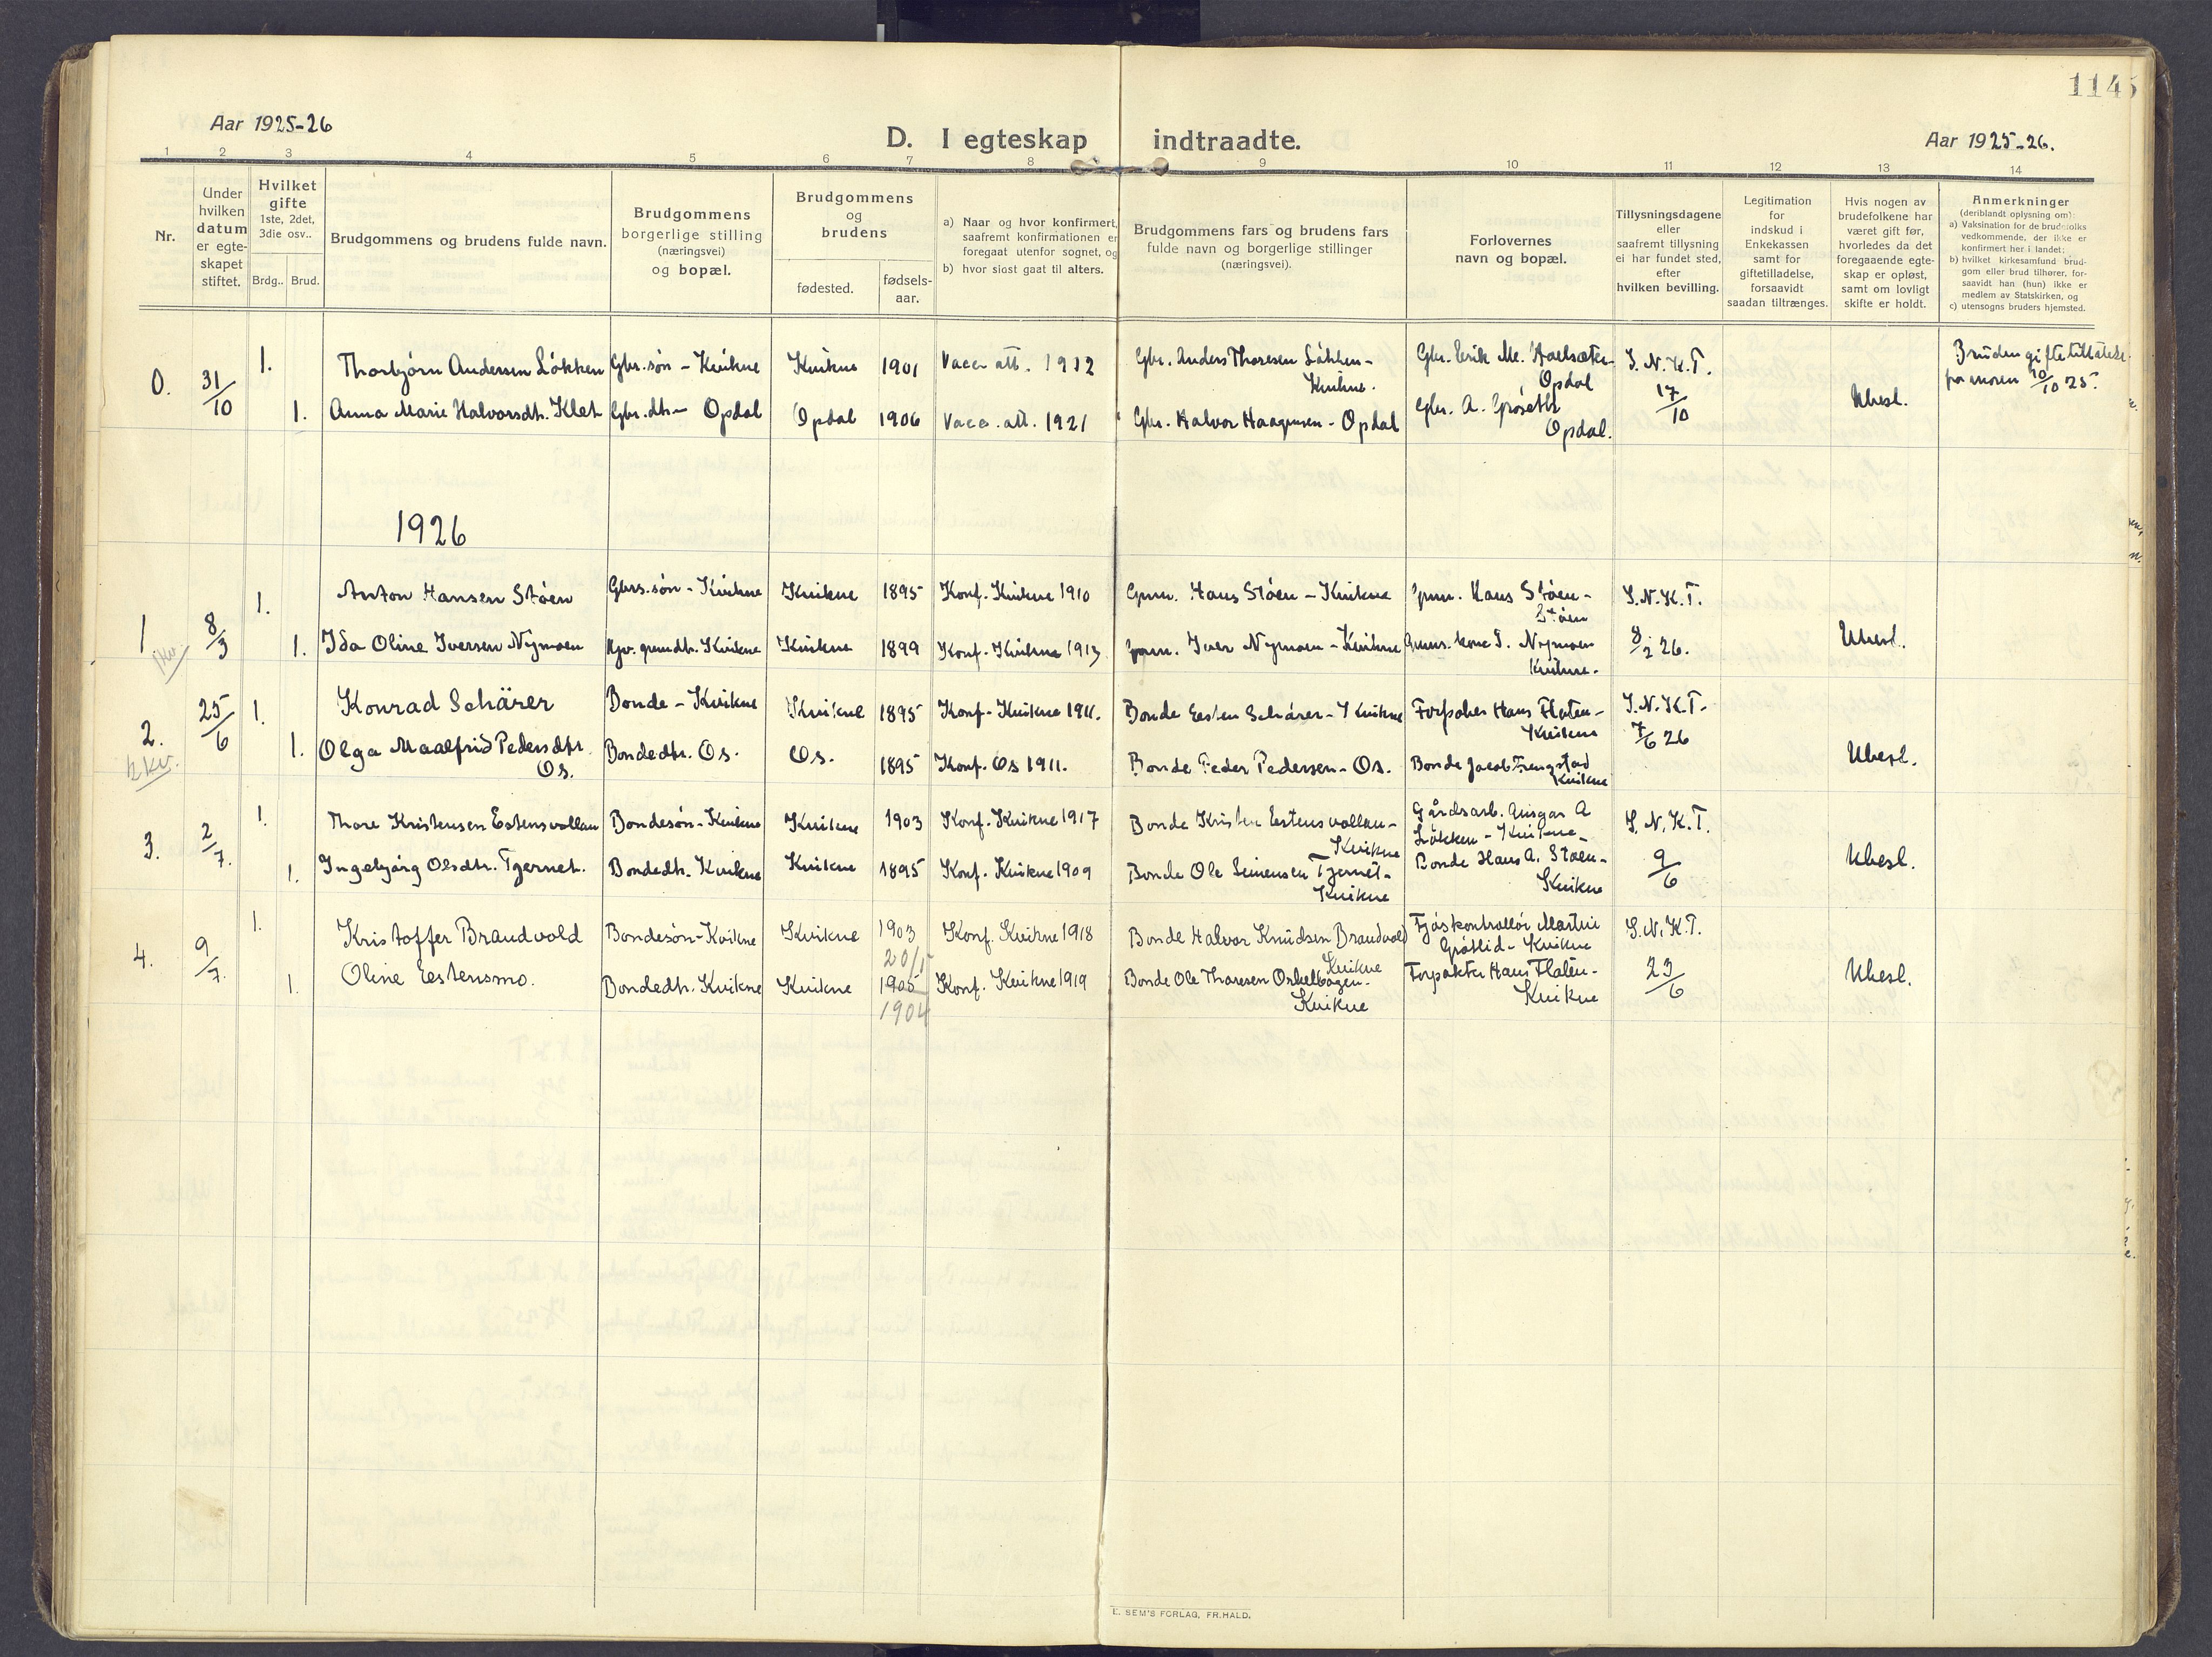 1145
Aar 1925-26
D. I egteskap indtraadte.
Aar 1925-26.
1 2 3 4 5 6 7 8 9 10 11 12 13 14
Nr.
Under
hvilken
datum
er egte-
skapet
stiftet.
Hvilket
gifte
1ste, 2det,
3die osv..
Brdg.. Brud.
Brudgommens og brudens fulde navn.
Brudgommens
borgerlige stilling
(næringsvei)
og bopæl.
Brudgommens
og
brudens
fødested.
fødsels-
aar.
a) Naar og hvor konfirmert,
saafremt konfirmationen er
foregaat utenfor sognet, og
b) hvor sidst gaat til alters.
Brudgommens fars og brudens fars
fulde navn og borgerlige stillinger
(næringsvei).
Forlovernes
navn og bopæl.
Tillysningsdagene
eller
saafremt tillysning
ei har fundet sted,
efter
hvilken bevilling.
Legitimation
for
indskud i
Enkekassen
samt for
giftetilladelse,
forsaavidt
saadan tiltrænges.
Hvis nogen av
brudefolkene har
været gift før,
hvorledes da det
foregaaende egte-
skap er opløst,
samt om lovligt
skifte er holdt.
Anmerkninger
(deriblandt oplysning om):
a) Vaksination for de brudefolks
vedkommende, der ikke er
konfirmert her i landet;
b) hvilket kirkesamfund brud-
gom eller brud tilhører, for-
saavidt han (hun) ikke er
medlem av Statskirken, og
c) utensogns bruders hjemsted.
0. 31/10 1. Thorbjörn Andersen Lökken Gbr. sön - Kvikne Kvikne 1901 Vacc. att. 1912 Gbr. Anders Thoresen Lökken -
Kvikne.
Gbr. Erik M.
Opdal
S. N. K. T.
17/10
Ubesl.
Bruden giftetilladelse
fra moren 10/10 25.
1. Anna Marie Halvorsdtr. Klet Gbr. dtr - Opdal Opdal 1906 Vacc. att. 1921 Gbr. Halvor Haagensen - Opdal
Gbr. A. Gröseth
Opdal.
1926
1 8/3 1. Anton Hansen Stöen Gbrs. sön - Kvikne Kvikne 1895 Konf. Kvikne 1910 Gmn. Hans Stöen - Kvikne Gmn. Hans Stöen -
Stöen
S. N. K. T.
1. Ida Oline Iversen Nymoen Kvikne Kvikne 1899 Konf. Kvikne 1913 Gmn. Iver Nymoen - Kvikne Nymoen
Kvikne.
8/2 26.
Ubesl.
2. 25/6 1. Konrad Schärer Bonde - Kvikne Kvikne 1895 Konf. Kvikne 1911. Bonde Esten Schärer - Kvikne Forpakter Hans Flaten -
Kvikne
S. N. K. T.
7/6 26
2 kv.
1. Olga Maalfrid Pedersdtr.
Os.
Bondedtr. Os. Os. 1895 Konf. Os 1911. Bonde Peder Pedersen - Os. Bonde Jacob Frengstad
Kvikne
Ubesl.
3. 2/7. 1. Thore Kristensen Estensvollan Bondesön - Kvikne Kvikne 1903 Konf. Kvikne 1917 Bonde Kristen Estensvollan -
Kvikne
Gårdsarb. Ansgar A
Lökken - Kvikne -
S. N. K. T.
1. Ingebjörg Olsdtr. Tjernet. Bondedtr. Kvikne Kvikne 1895 Konf. Kvikne 1909 Bonde Ole Simensen Tjernet -
Kvikne
Bonde Hans A. Stöen -
Kvikne
9/6
Ubesl.
4. 9/7. 1. Kristoffer Brandvold Bondesön - Kvikne Kvikne 1903 Konf. Kvikne 1918 Bonde Halvor Knudsen Brandvold
Kvikne
Fjöskontrollör Martin
Gröttlid - Kvikne
S. N. K. T.
1. Oline Estensmo. Bondedtr. Kvikne Kvikne 1905 Konf. Kvikne 1919 Bonde Ole Thoresen
Kvikne
Forpakter Hans Flaten -
Kvikne
23/6
Ubesl.
1904
E. SEM'S FORLAG, FR.HALD.